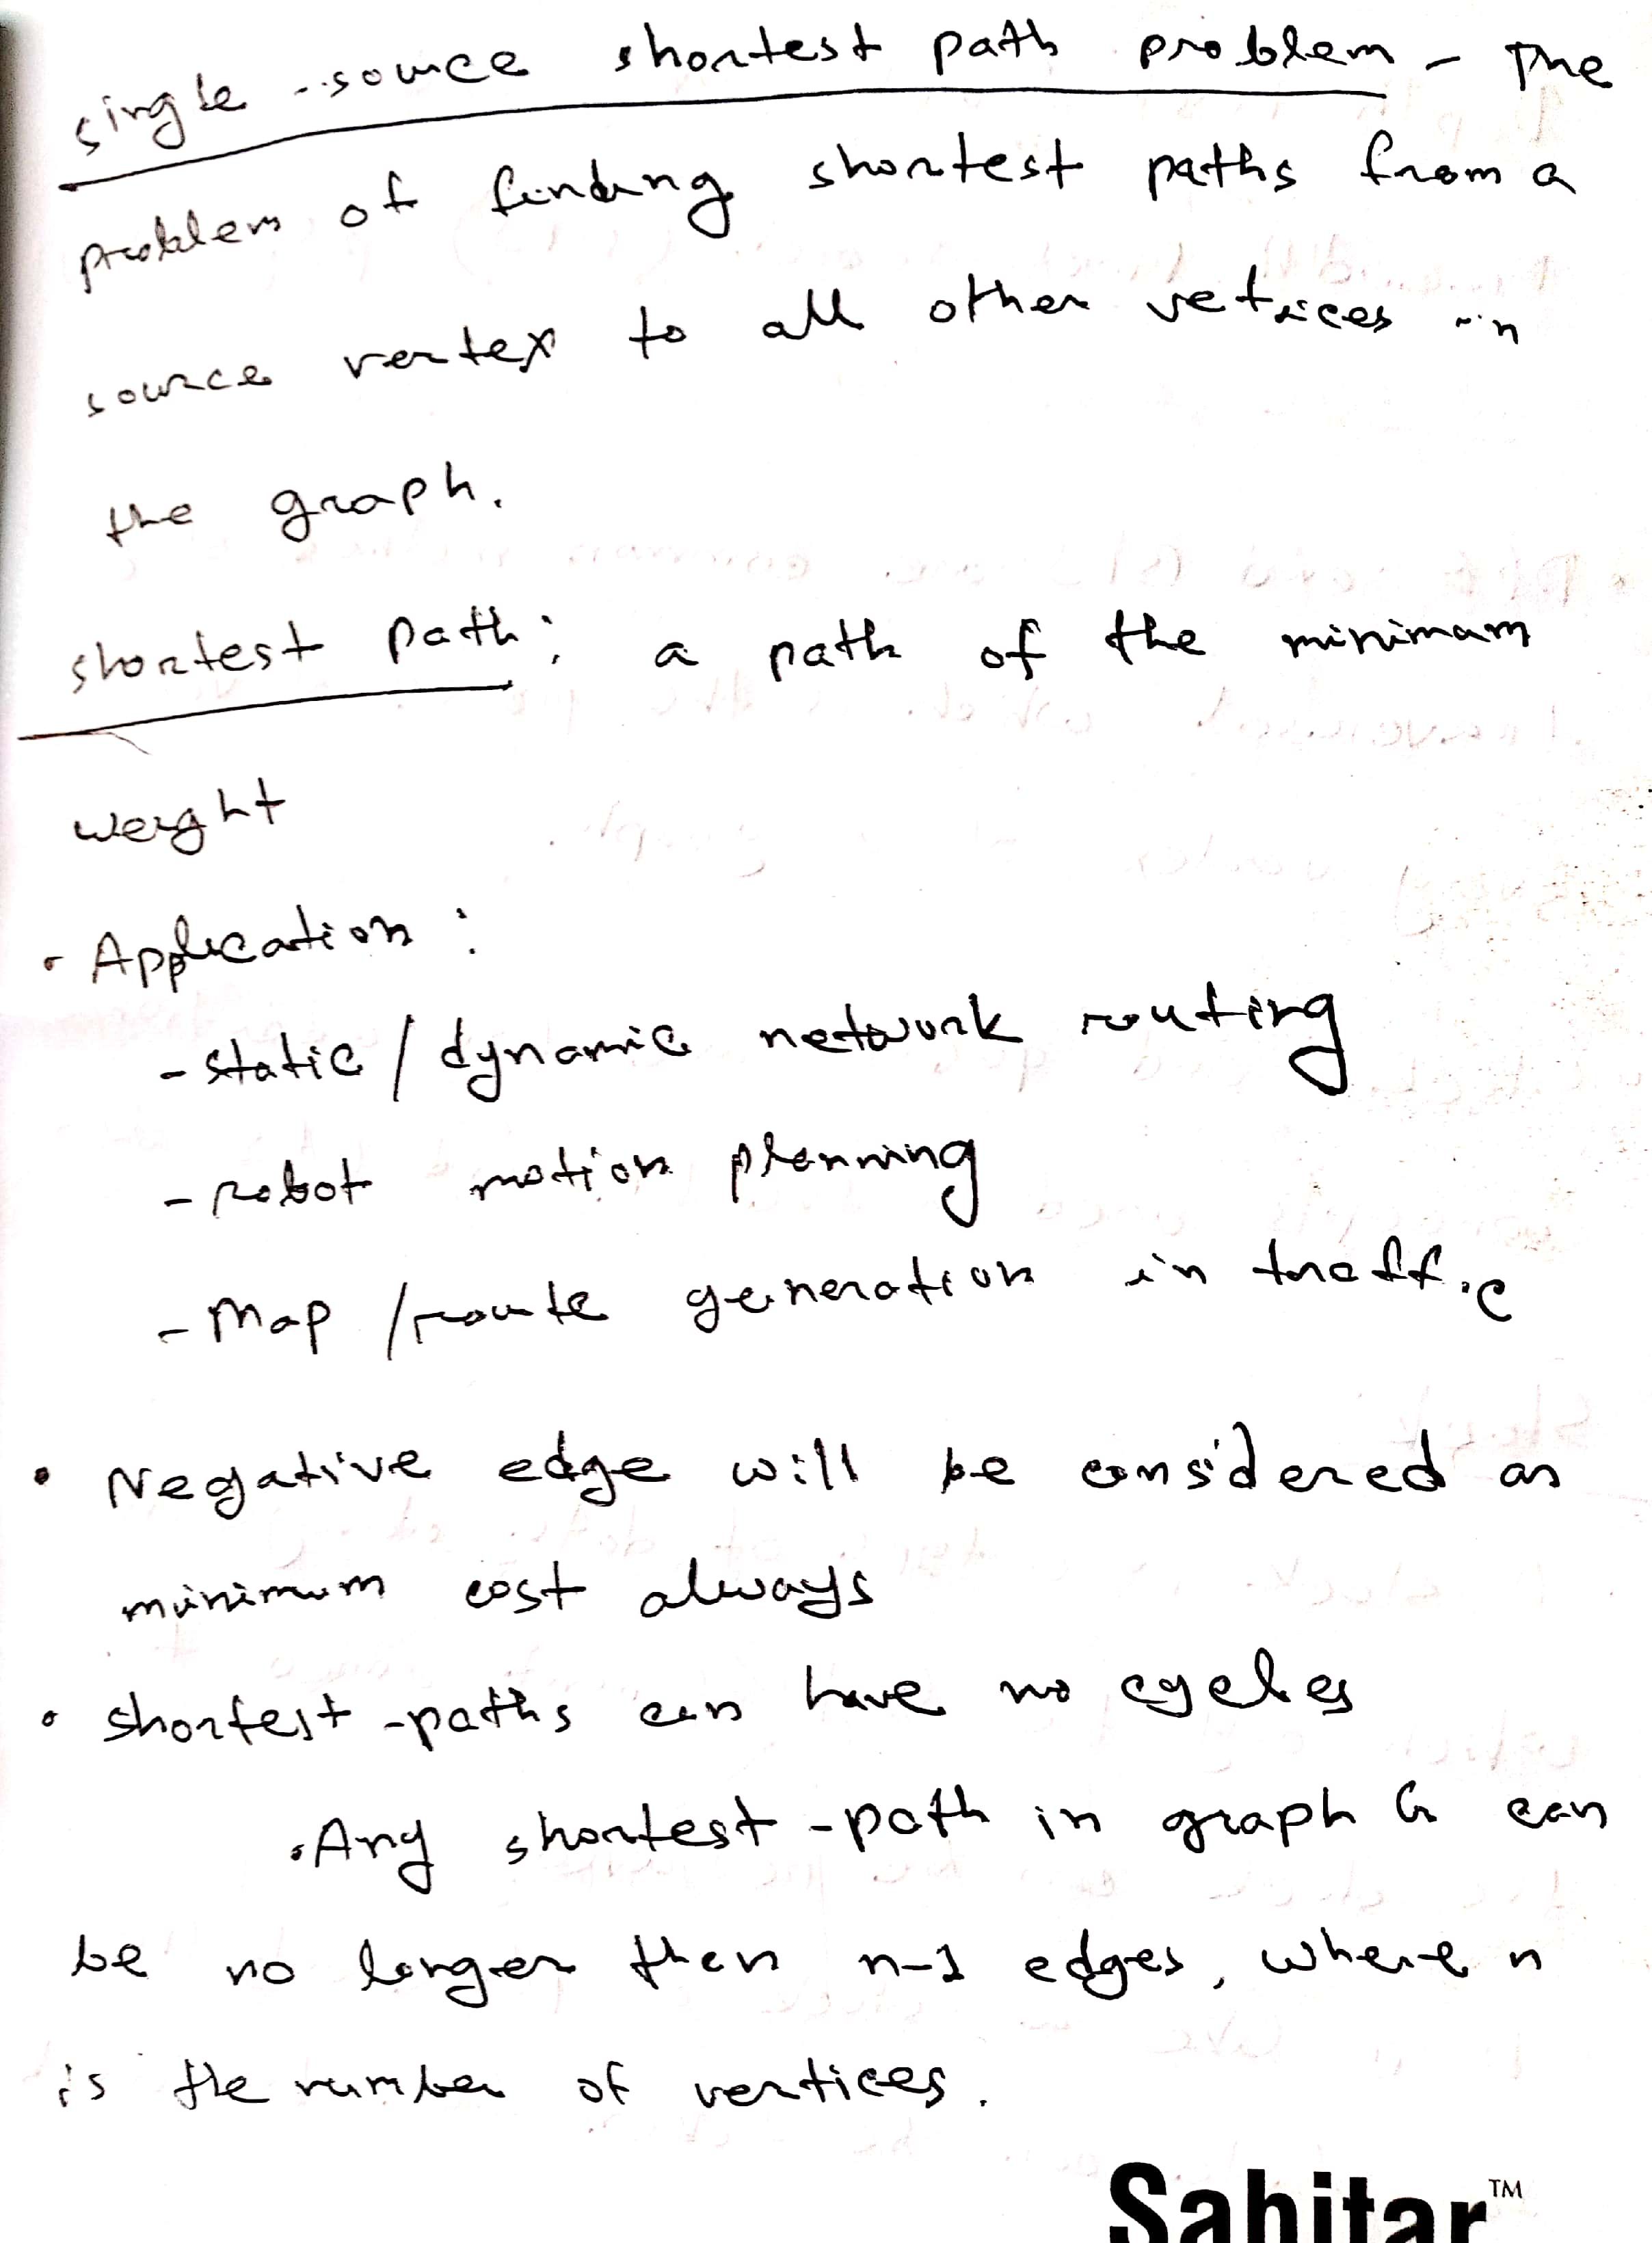 single-source shortest path problem - The
problem of finding shortest paths from a
source vertex to all other vetrices in
the graph.
shortest path: a path of the minimum
weight
• Application:
- static / dynamic network routing
- robot motion planning
- Map / route generation in traffic
• Negative edge will be considered as
minimum cost always
• shortest-paths can have no cycles
• Any shortest-path in graph G can
be no longer then n-1 edges, where n
is the number of vertices.
Sahitar™